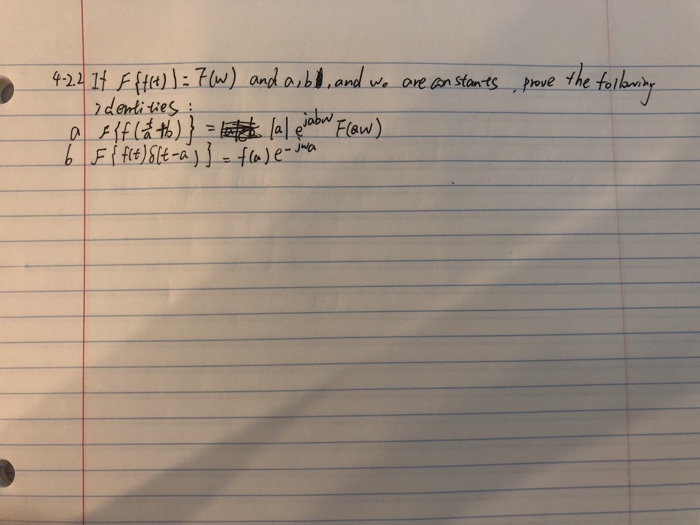 4-2.2 If F{f(t)} = F(w) and a, b, and w₀ are constants, prove the following
identities :
a F{f(t/a + b)} = |a| e^jabw F(aw)
b F{f(t)δ(t-a)} = f(a) e^-jwa